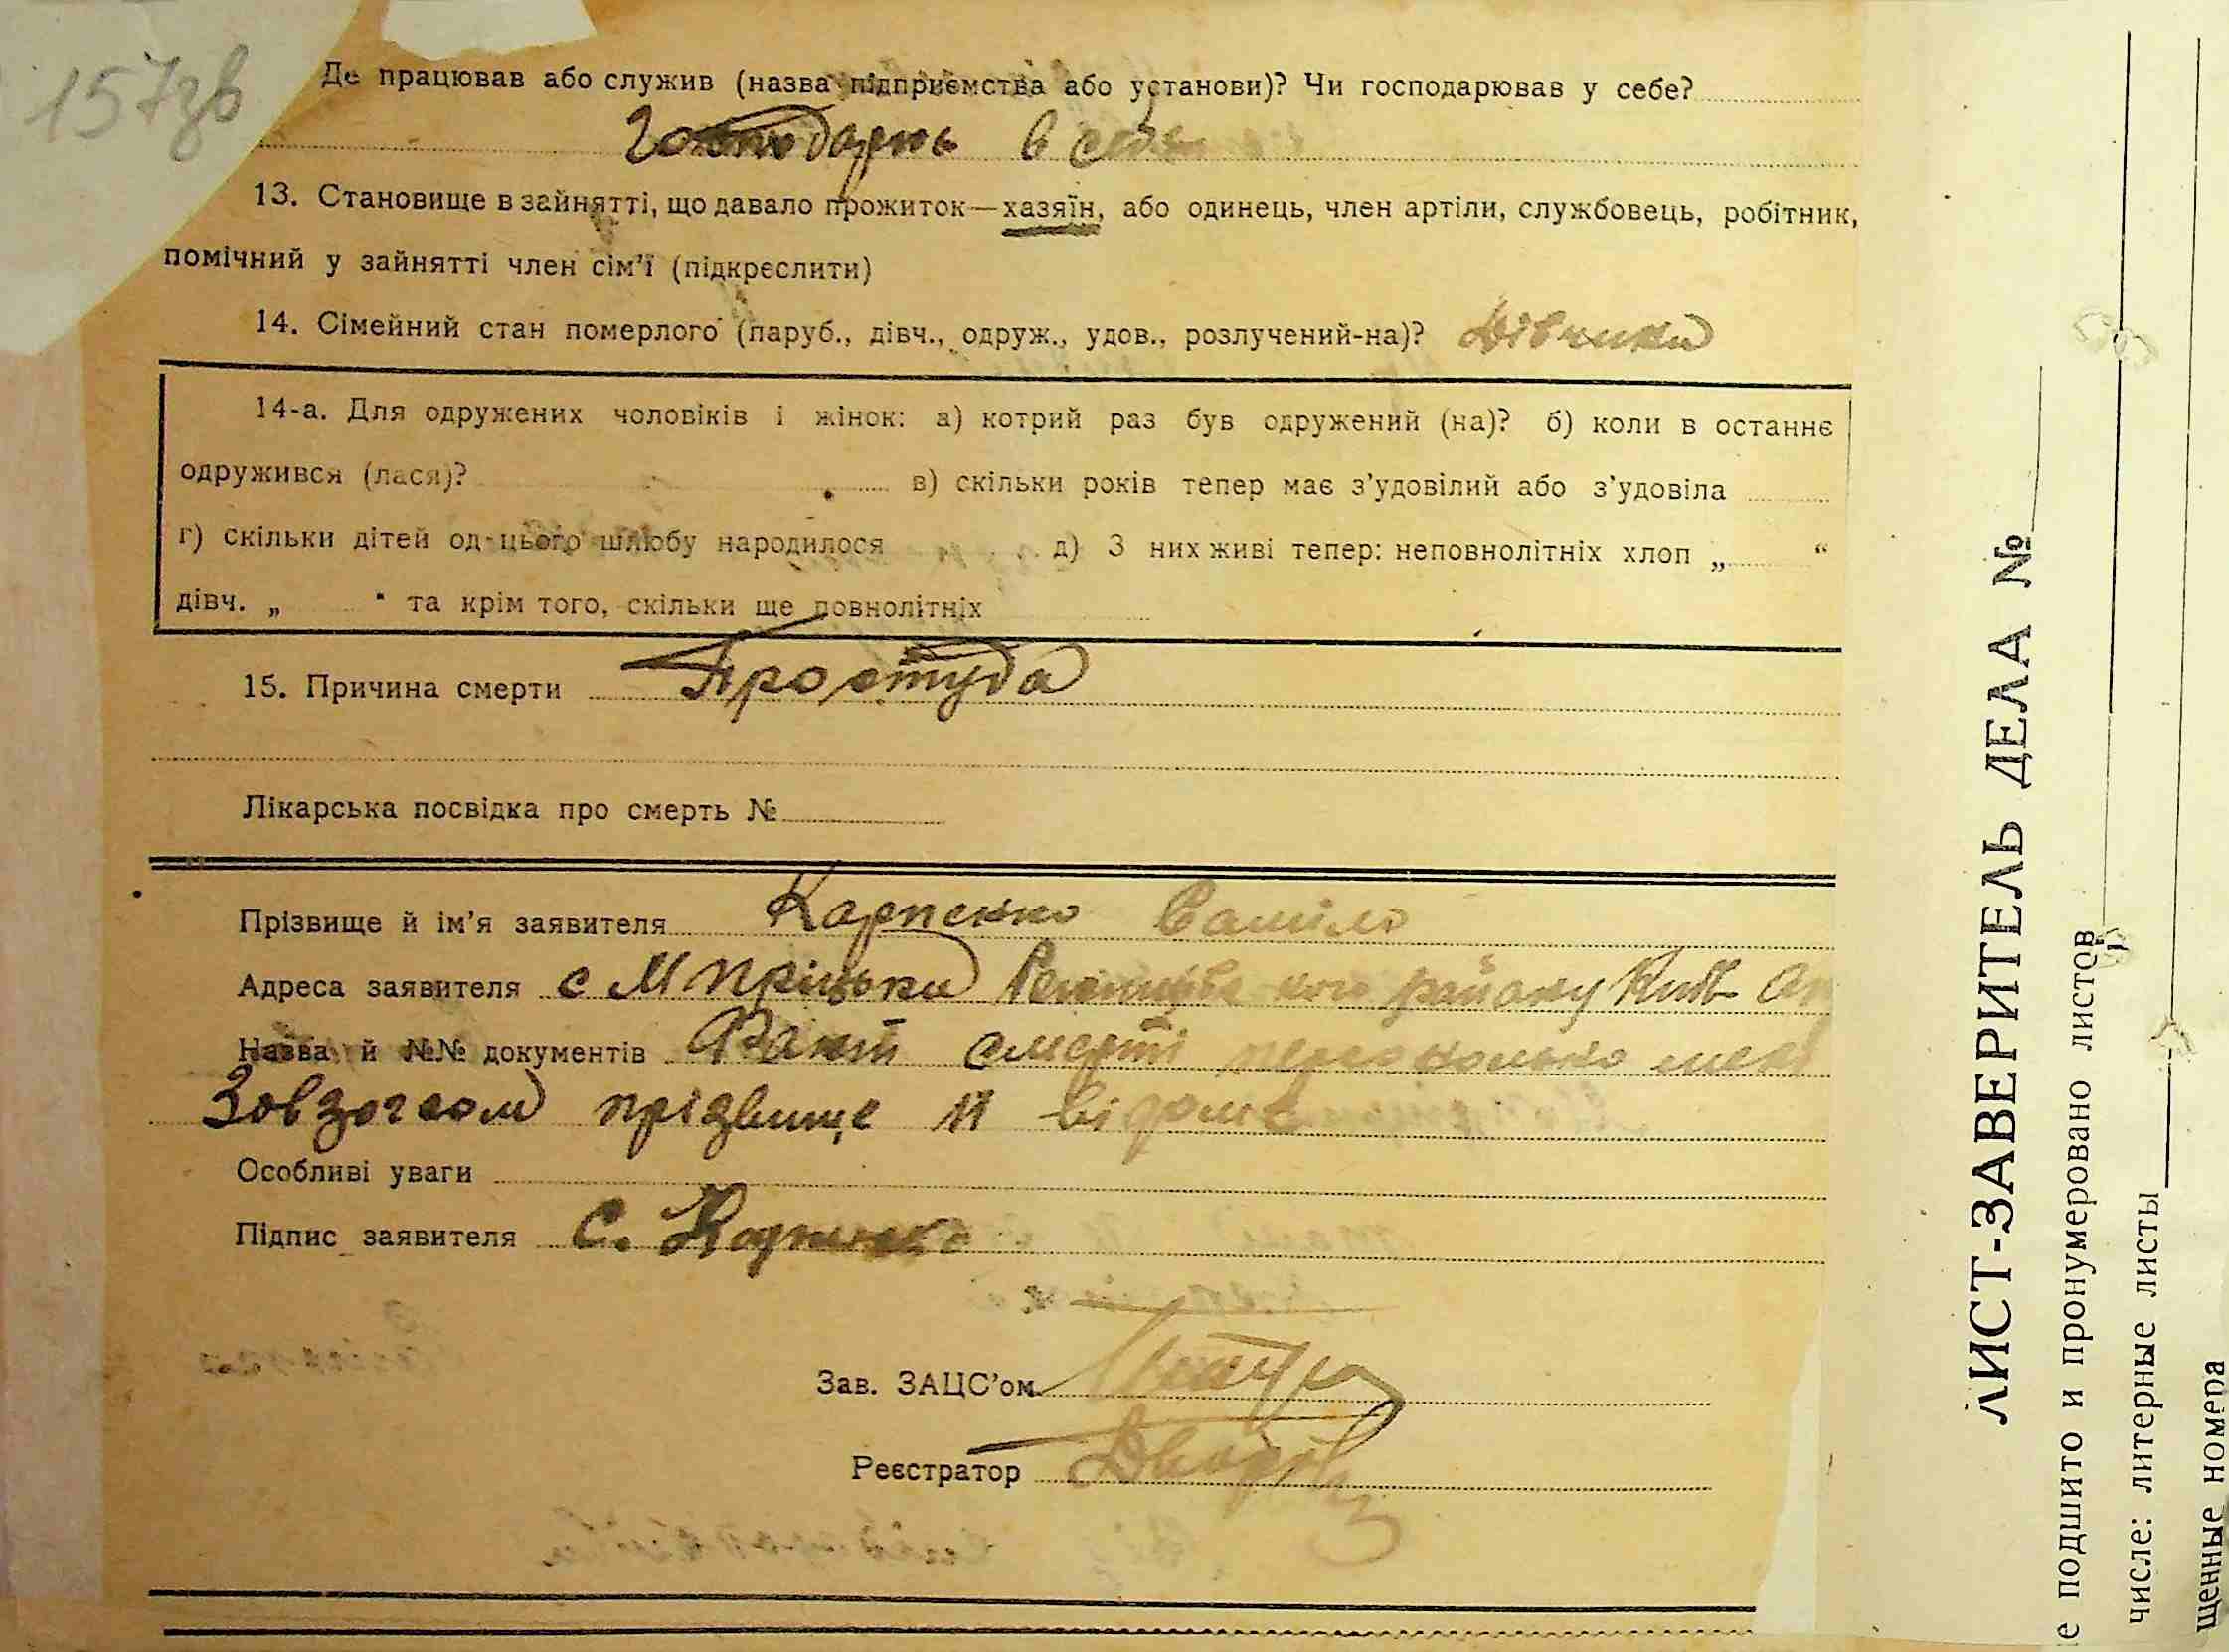 157зв
Де працював або служив (назва підприємства або установи)? Чи господарював у себе?
в себе
13. Становище в зайнятті, що давало прожиток—хазяїн, або одинець, член артіли, службовець, робітник,
помічний у зайнятті член сім'ї (підкреслити)
14. Сімейний стан померлого (паруб., дівч., одруж., удов., розлучений-на)?
14-а. Для одружених чоловіків і жінок: а) котрий раз був одружений (на)? б) коли в останнє
одружився (лася)? в) скільки років тепер має з'удовілий або з'удовіла
г) скільки дітей од цього шлюбу народилося д) З них живі тепер: неповнолітніх хлоп „ “
дівч. „ “ та крім того, скільки ще повнолітніх
15. Причина смерти Простуда
Лікарська посвідка про смерть №
Прізвище й ім'я заявителя Карпенко
Адреса заявителя с М Прицьки району Київ
Назва й №№ документів Факт смерті
прізвище й відоме
Особливі уваги
Підпис заявителя С. Карпенко
Зав. ЗАЦС'ом
Реєстратор
ЛИСТ-ЗАВЕРИТЕЛЬ ДЕЛА №
е подшито и пронумеровано листов
числе: литерные листы
щенные номера